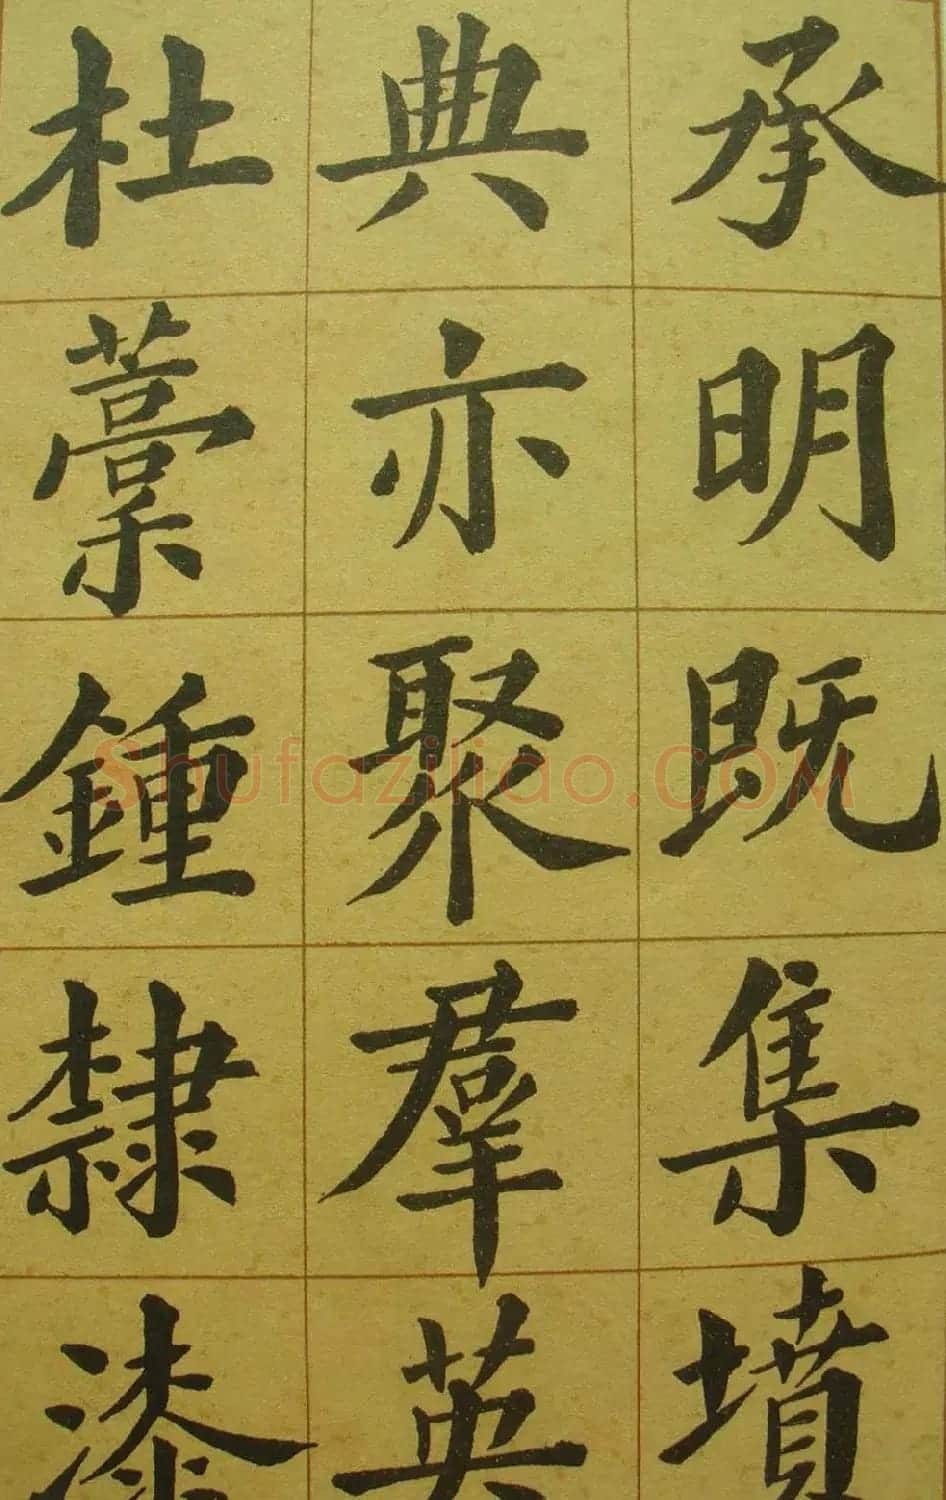 承明既集墳
典亦聚羣英
杜藁鍾隸漆
Shufaziliao.COM